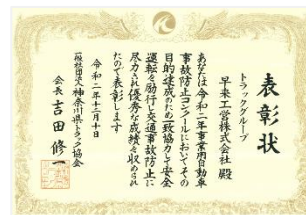 表彰状
トラックグループ
早来工営株式会社 殿
あなたは令和二年事業用自動車
事故防止コンクールにおいてその
目的達成のため一致協力して安全
運転を励行し交通事故防止に
尽力され優秀な成績を収められ
たので表彰します
令和二年十二月十日
一般社団法人神奈川県トラック協会
会長 吉田修一